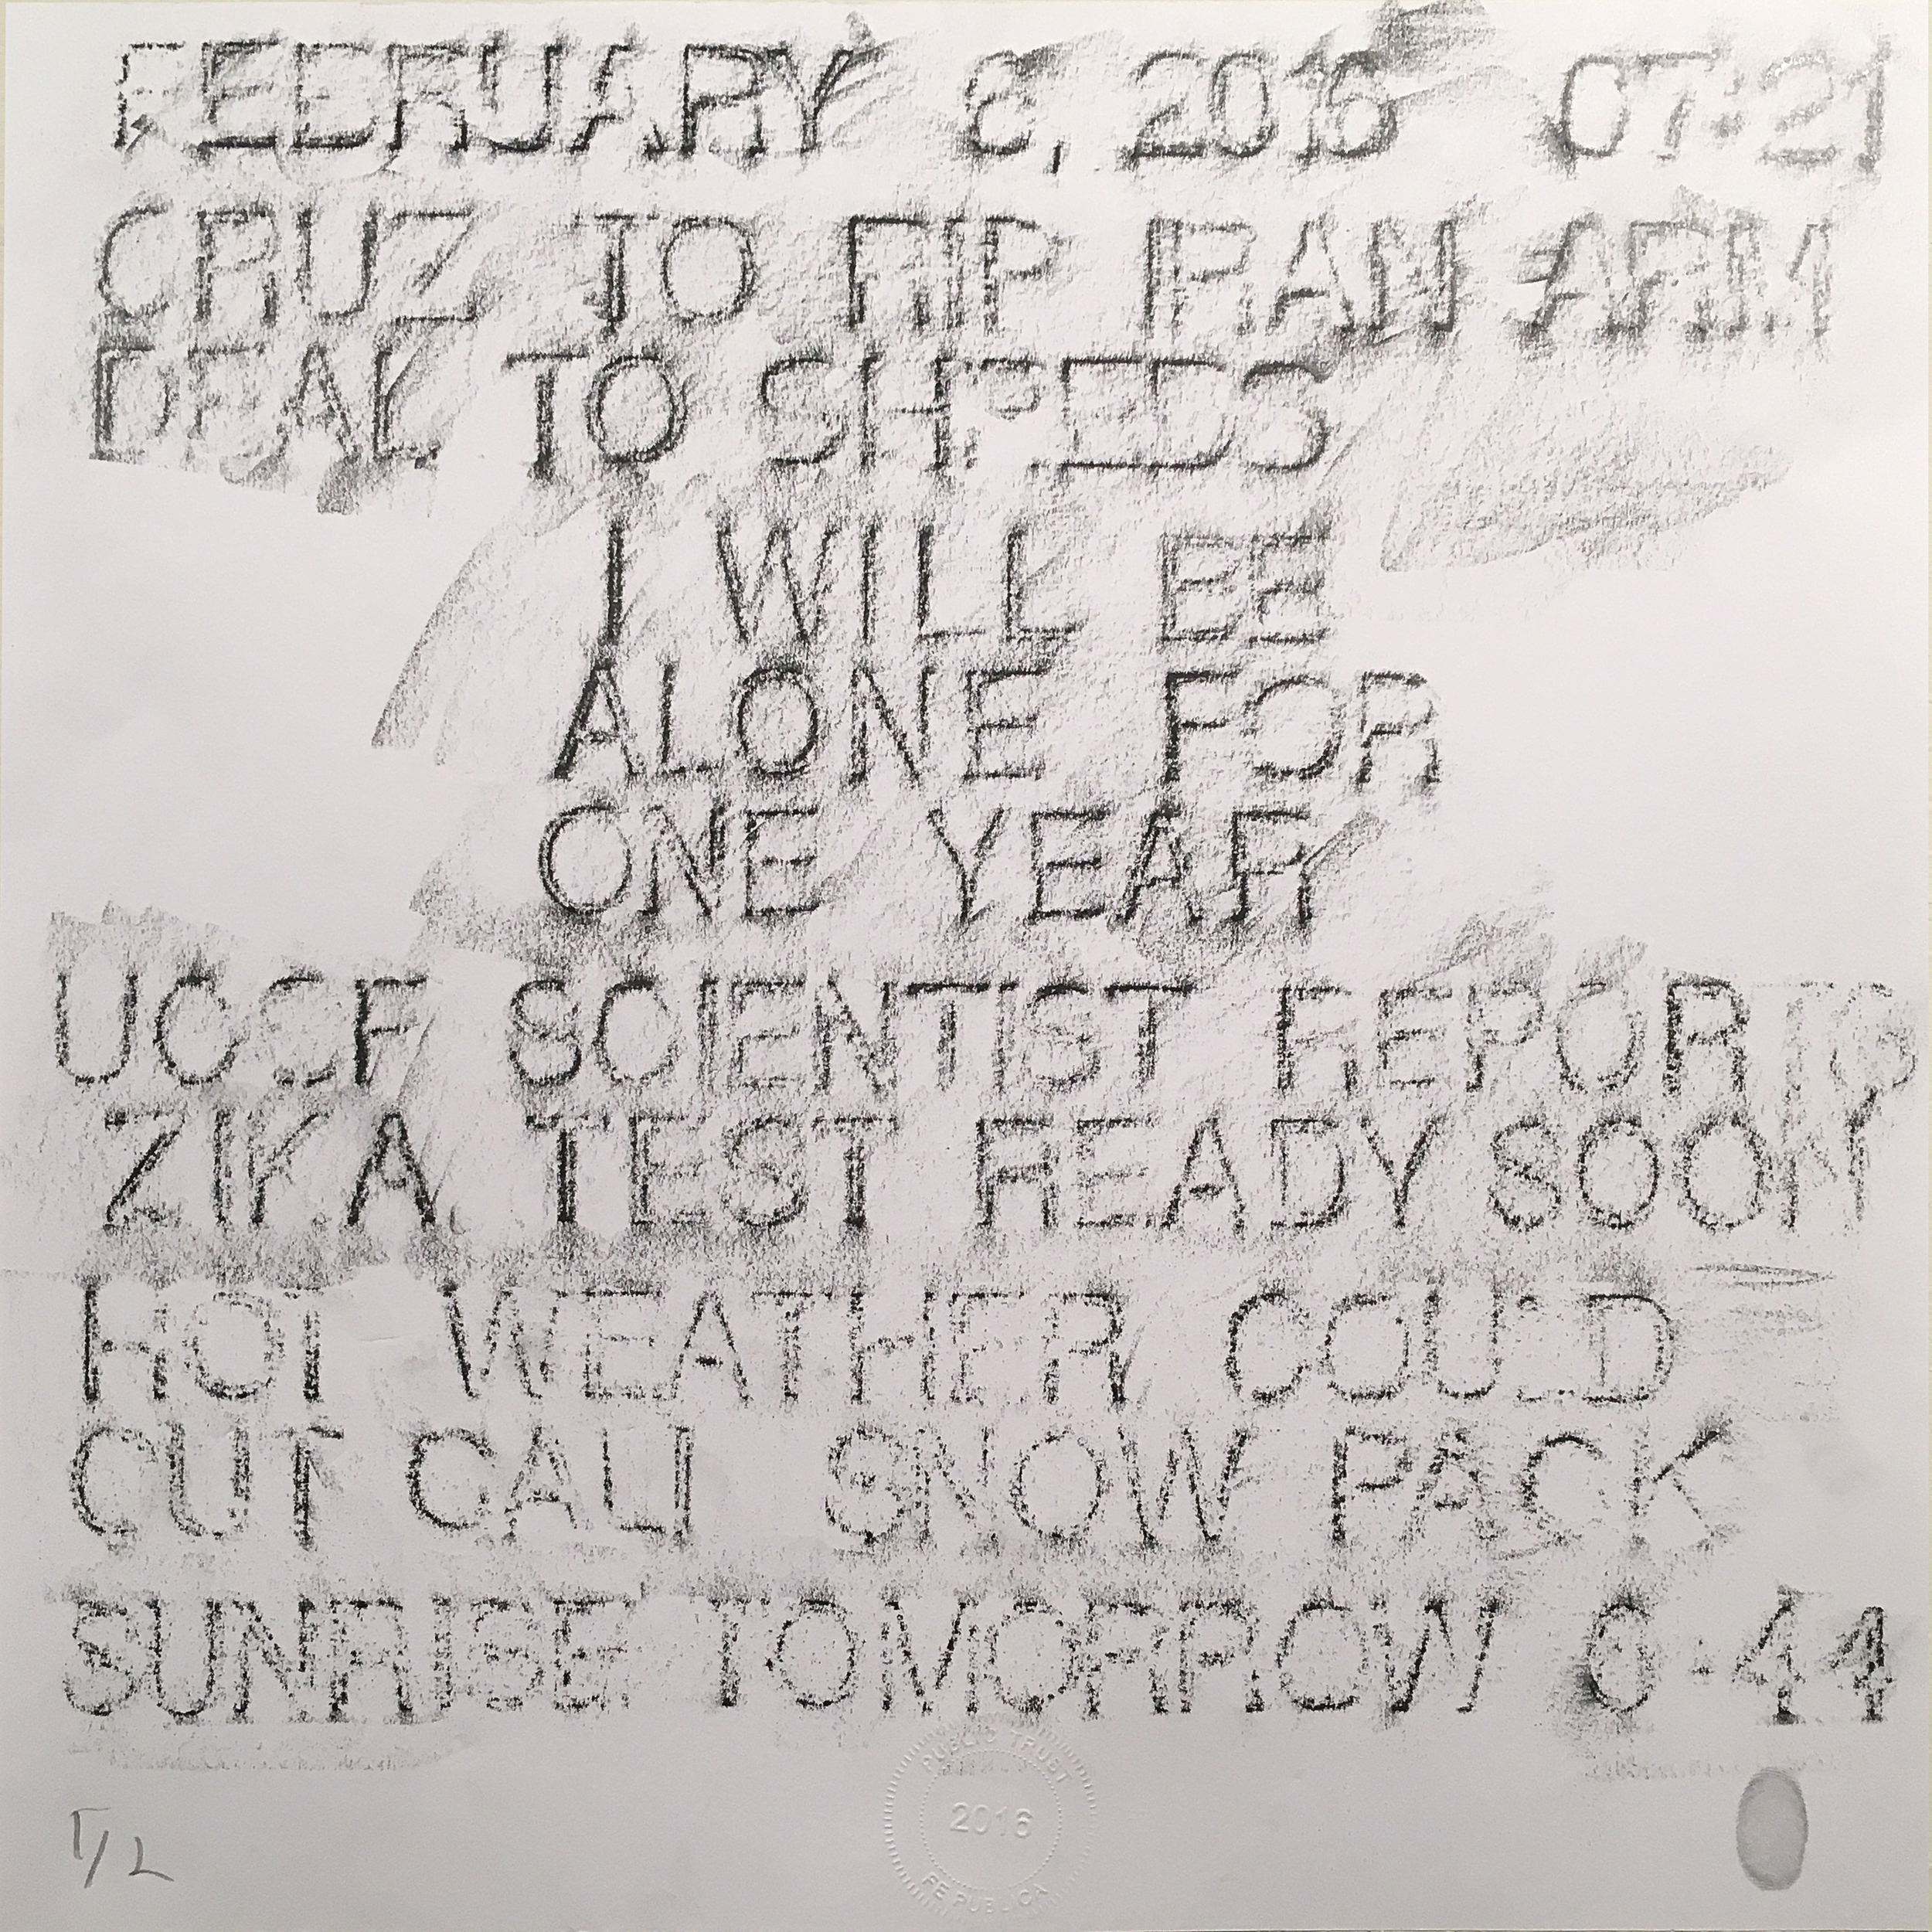 FEBRUARY 2016 07:21
CRUZ TO RIP IRAN ARM
DEAL TO SHREDS
I WILL BE
ALONE FOR
ONE YEAR
UCSF SCIENTIST REPORTS
ZIKA TEST READY SOON
HOT WEATHER COULD
CUT CALI SNOW PACK
SUNRISE TOMORROW 6:44
PUBLIC TRUST
2016
RE PUBLICA
1/2